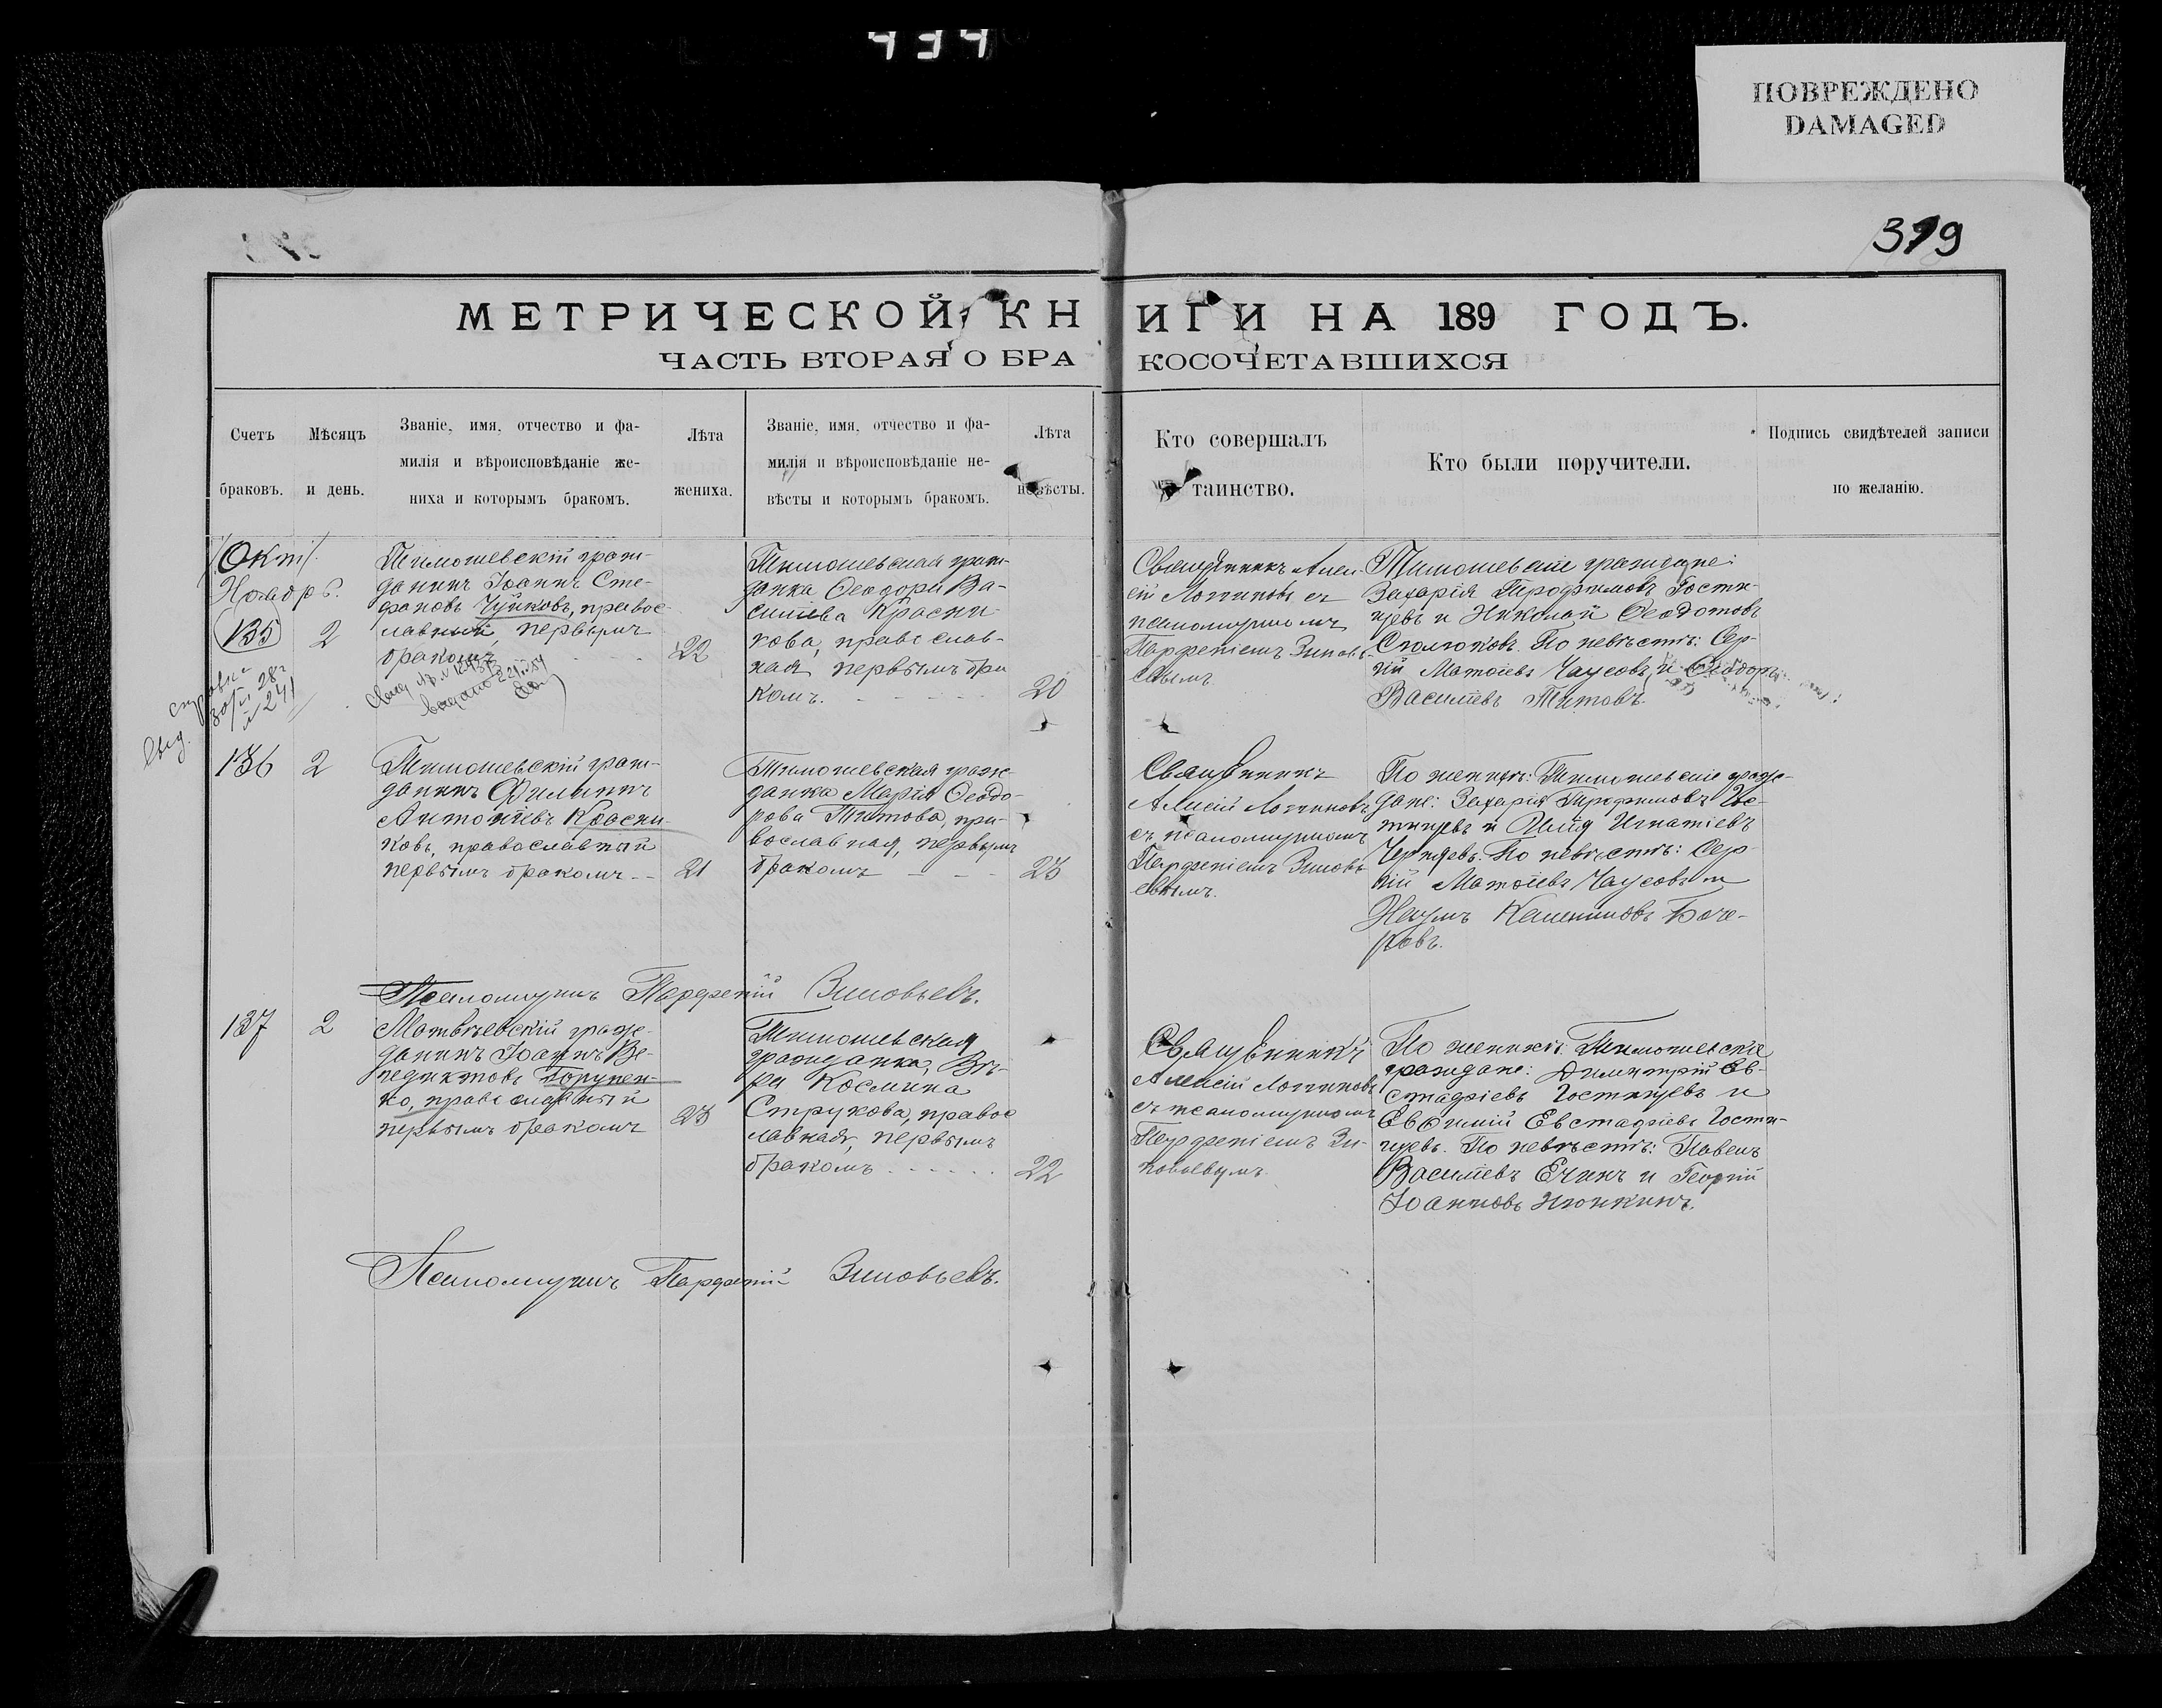 434
ПОВРЕЖДЕНО
DAMAGED
319
МЕТРИЧЕСКОЙ КНИГИ НА 189 ГОДЪ.
ЧАСТЬ ВТОРАЯ О БРАКОСОЧЕТАВШИХСЯ
Счетъ
браковъ.
Мѣсяцъ
и день.
Званіе, имя, отчество и фа-
милія и вѣроисповѣданіе же-
ниха и которымъ бракомъ.
Лѣта
жениха.
Званіе, имя, отчество и фа-
милія и вѣроисповѣданіе не-
вѣсты и которымъ бракомъ.
Лѣта
невѣсты.
Кто совершалъ
таинство.
Кто были поручители.
Подпись свидѣтелей записи
по желанію.
Окт.
Ноябрь.
135
2
Тимошевскій граж-
данинъ Іоаннъ Сте-
фановъ Чуйковъ, правос-
лавный, первымъ
бракомъ
22
Тимошевская граж-
данка Ѳеодора Ва-
силіева Красни-
кова, православ-
ная, первымъ бра
комъ.
20
Священникъ Алек-
сій Логиновъ съ
псаломщикомъ
Парфеніемъ Зиновь-
евымъ.
Тимошевскіе граждане:
Захарія Трофимовъ Гости-
щевъ и Николай Ѳеодотовъ
По невѣстѣ: Сер-
гій Матѳіевъ Чаусовъ и Ѳеодоръ
Василіевъ Титовъ.
136
2
Тимошевскій граж-
данинъ Филиппъ
Антоніевъ Красни-
ковъ, православный
первымъ бракомъ
21
Тимошевская граж-
данка Марія Ѳеодо-
рова Титова, пра-
вославная, первымъ
бракомъ
23
Священникъ
Алексій Логиновъ
съ псаломщикомъ
Парфеніемъ Зиновь
евымъ.
По женихѣ: Тимошевскіе граж-
дане: Захарія Трофимовъ Гос-
тищевъ и Илія Игнатіевъ
По невѣстѣ: Сер-
гій Матѳіевъ Чаусовъ и
Наумъ Боче-
ровъ.
Псаломщикъ Парфеній Зиновьевъ.
137
2
Матвѣевскій граж-
данинъ Іоаннъ Ве-
недиктовъ
ко, православный
первымъ бракомъ
23
Тимошевская
гражданка, Вѣ-
ра Космина
Струкова, правос
лавная, первымъ
бракомъ
22
Священникъ
Алексій Логиновъ
съ псаломщикомъ
Парфеніемъ Зи-
новьевымъ.
По женихѣ: Тимошевскіе
граждане: Димитрій Ев-
стафіевъ Гостищевъ и
Евѳимій Евстафіевъ Гости-
щевъ. По невѣстѣ: Павелъ
Василіевъ Ечинъ и Георгій
Іоанновъ Нюнкинъ.
Псаломщикъ Парфеній Зиновьевъ.